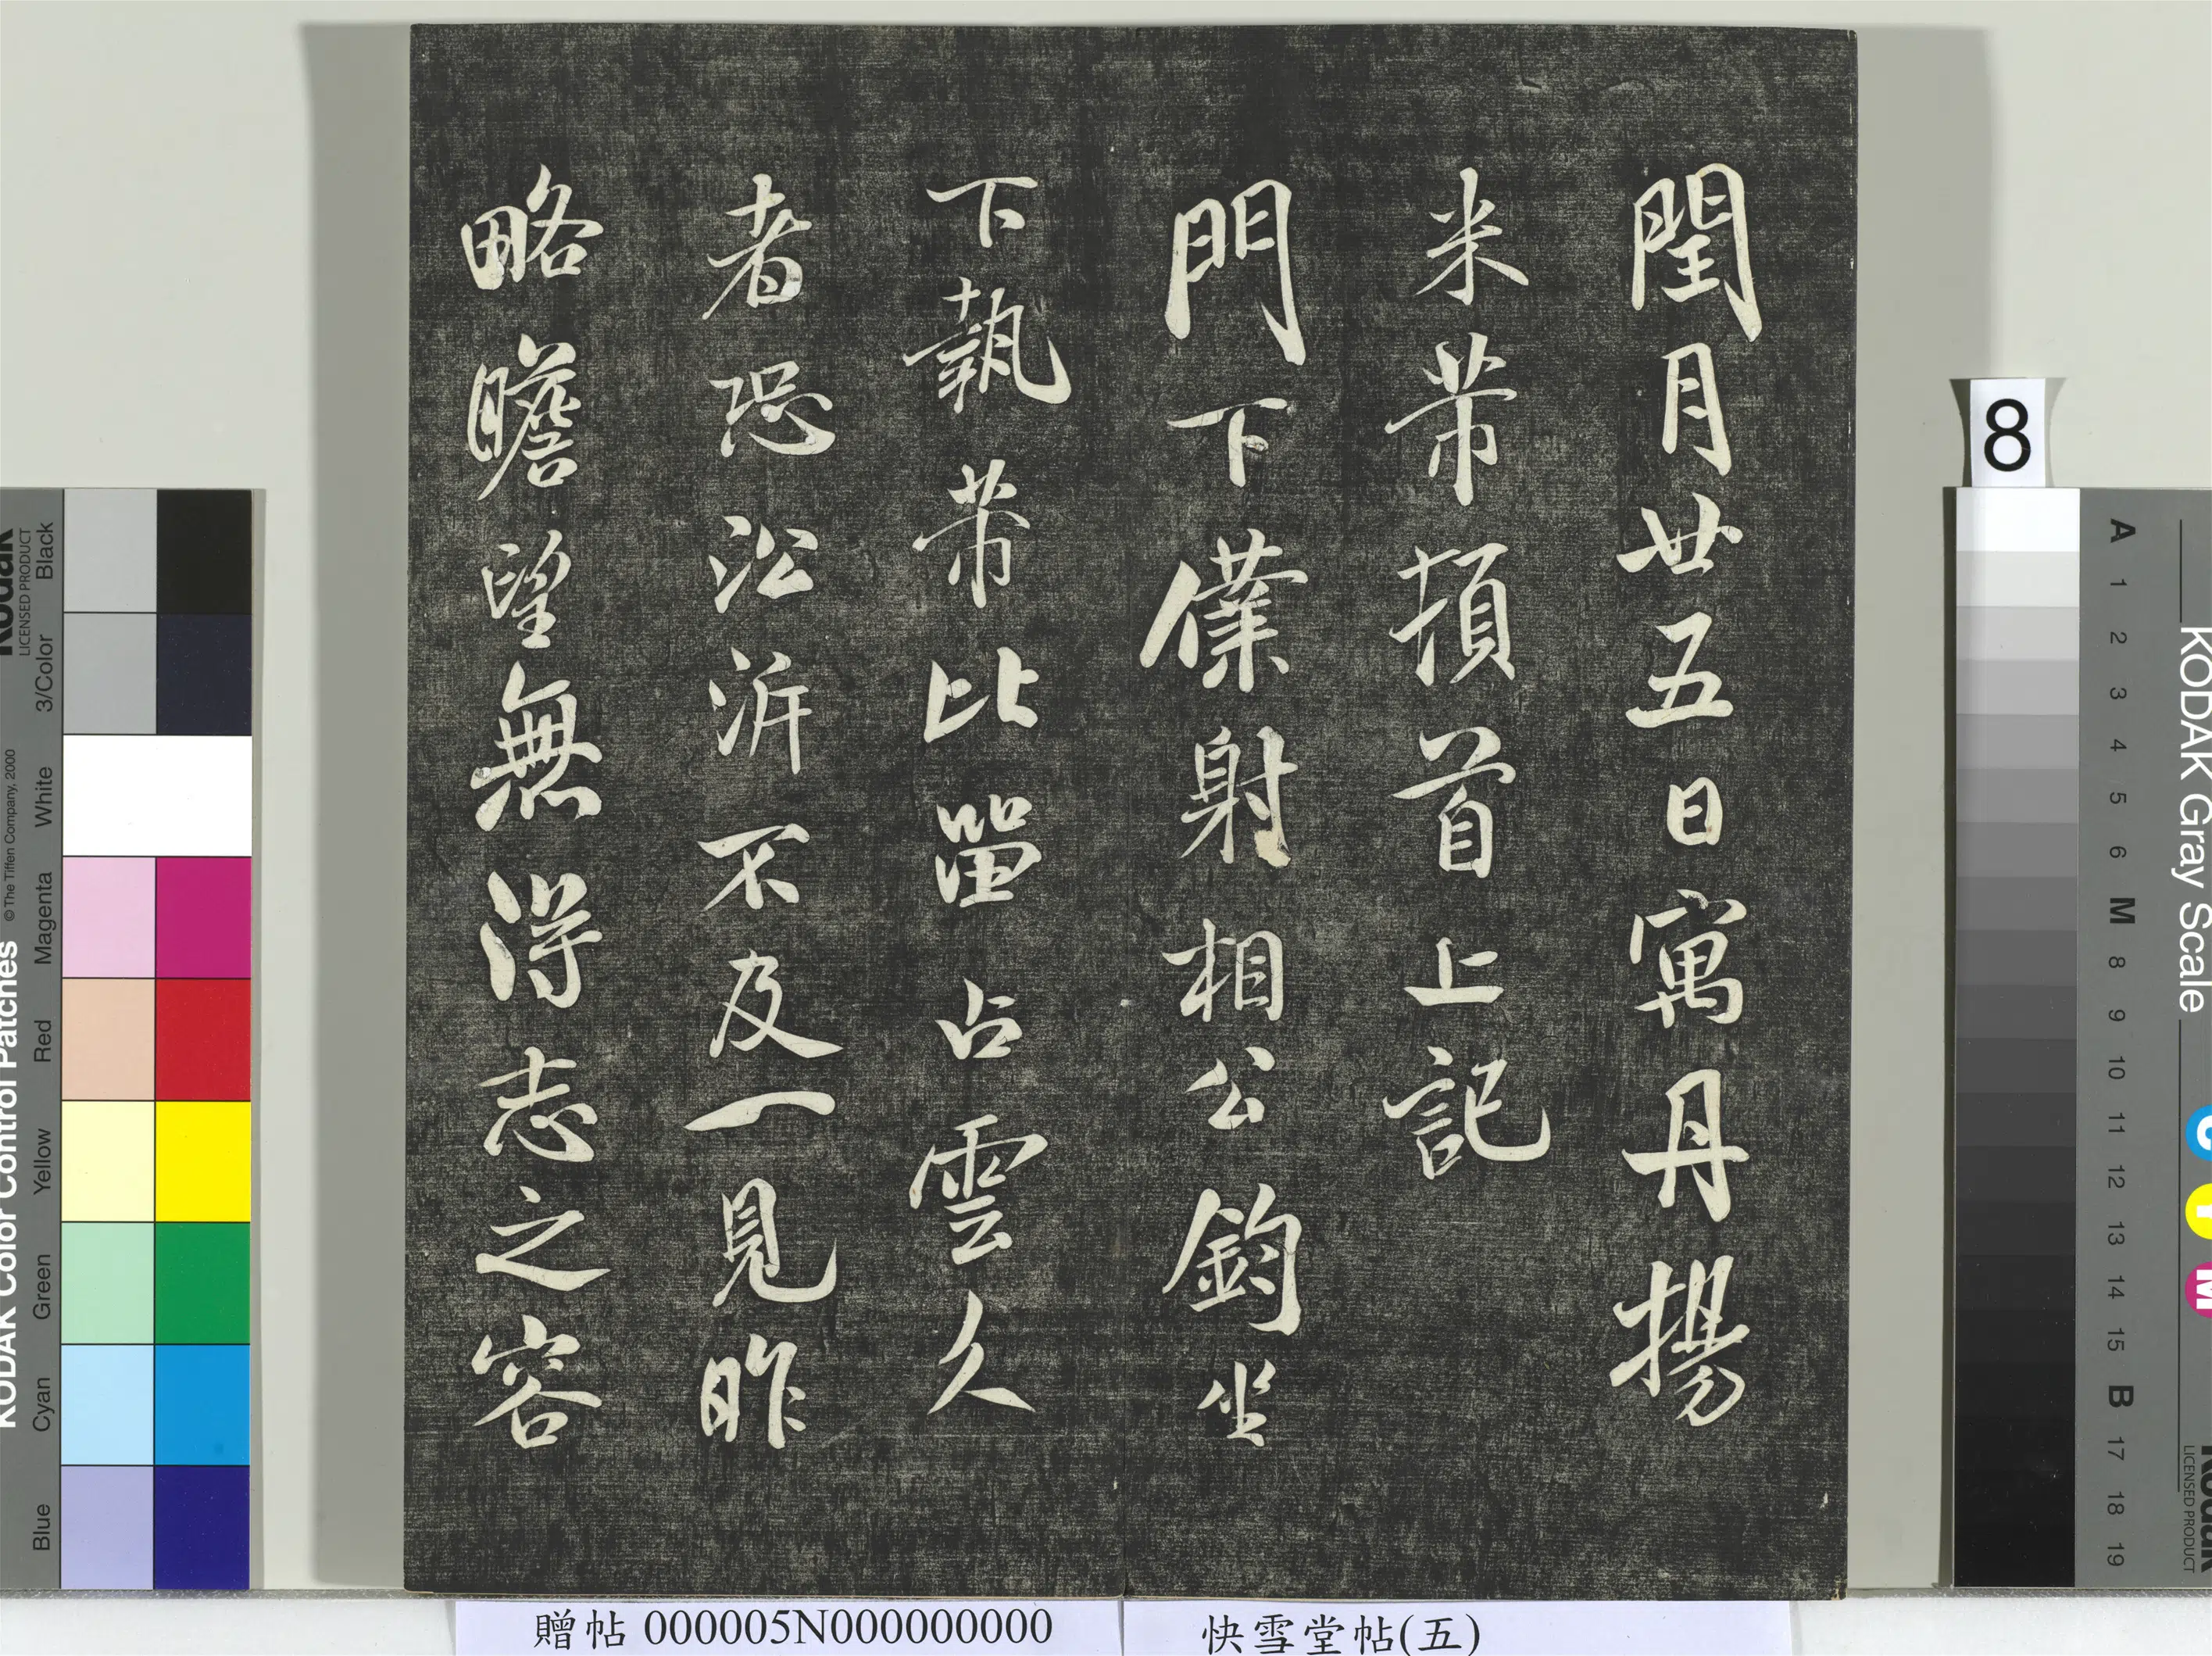 閏月廿五日寓丹揚
米芾頓首上記
門下僕射相公鈞坐
下執芾比罶占雲久
者恐訟泝不及一見昨
略瞻望無得志之容
8
KODAK Color Control Patches
© The Tiffen Company, 2000
Kodak
LICENSED PRODUCT
Black
3/Color
White
Magenta
Red
Yellow
Green
Cyan
Blue
KODAK Gray Scale
A 1 2 3 4 5 6 M 8 9 10 11 12 13 14 15 B 17 18 19
C
Y
M
Kodak
LICENSED PRODUCT
贈帖 000005N000000000
快雪堂帖(五)